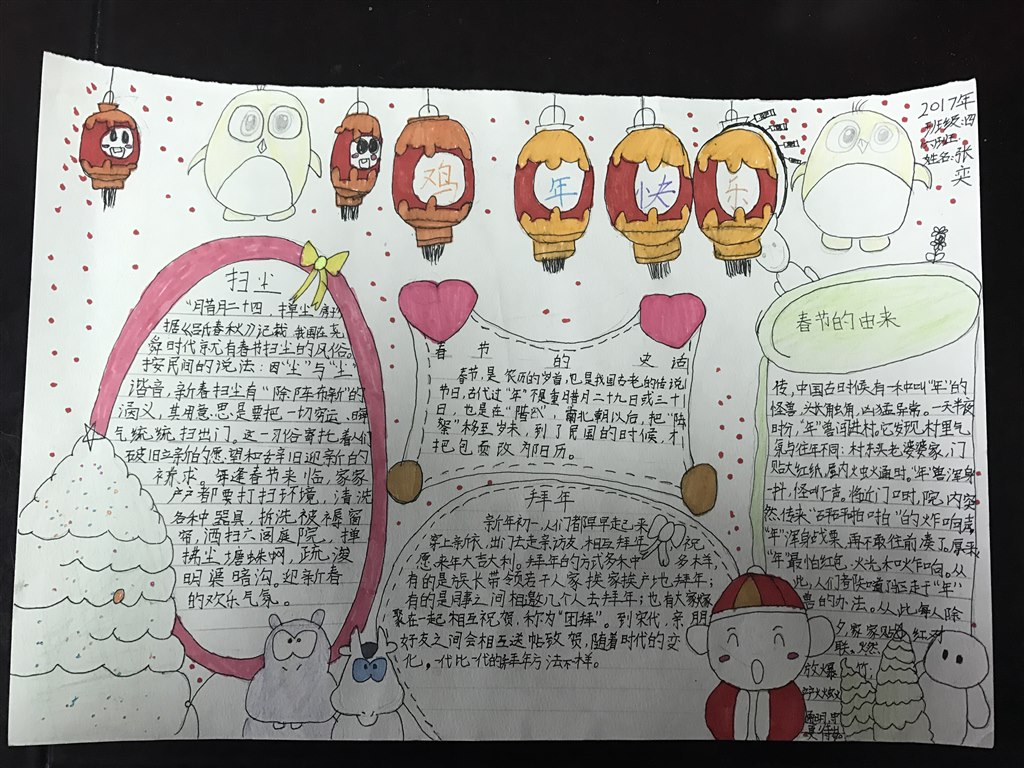 鸡年快乐
2017年
班级:四
六班
姓名:张
奕
扫尘
"腊月二十四,掸尘
据《吕氏春秋》记载,我国在尧
舜时代就有春节扫尘的风俗。
按民间的说法:因"尘"与"尘"
谐音,新春扫尘有"除陈布新"的
涵义,其用意思是要把一切穷运、晦
气统统扫出门。这一习俗寄托着人们
破旧立新的愿望和辞旧迎新的
祈求。每逢春节来临,家家
户户都要打扫环境,清洗
各种器具,拆洗被褥窗
帘,洒扫六闾庭院,掸
拂尘垢蛛网,疏浚
明渠暗沟。迎新春
的欢乐气氛。
春节的史话
春节,是农历的岁首,也是我国古老的传说
节日,古代过"年"不是
腊月二十九日或三十
日,也是在"腊
南北朝以后,把"
祭"移至岁末,到了民国的时候,才
把
改
历。
拜年
新年初一,人们都早早起来,
穿上新衣,出门去走亲访友,相互拜年,祝
愿来年大吉大利。拜年的方式多种多样,
有的是族长带领若干人家挨家挨户也拜年;
有的是同事之间相邀几个人去拜年;也有大家
聚在一起相互祝贺,称为"团拜"。到宋代,亲朋
好友之间会相互送帖致贺,随着时代的变
化,一代比一代的拜年方法不一样。
春节的由来
传,中国古时候有一种叫"年"的
怪兽,头长触角,凶猛异常。一天半夜
时分,"年"兽闯进村。它发现村里气
氛与往年不同:村
头老婆婆家,门
贴大红纸,屋内火烛通明。"年"兽浑身
一抖,怪叫
声。
近门口时,院内突
然传来"
啪啪"的炸响声,
"年"浑身战栗,再不敢往前凑了。原来
"年"最怕红色,火光和炸响。从
此,人们都知道了
走"年"
兽的办法。从此每人除
夕,家家贴红对
联。燃
放爆竹;